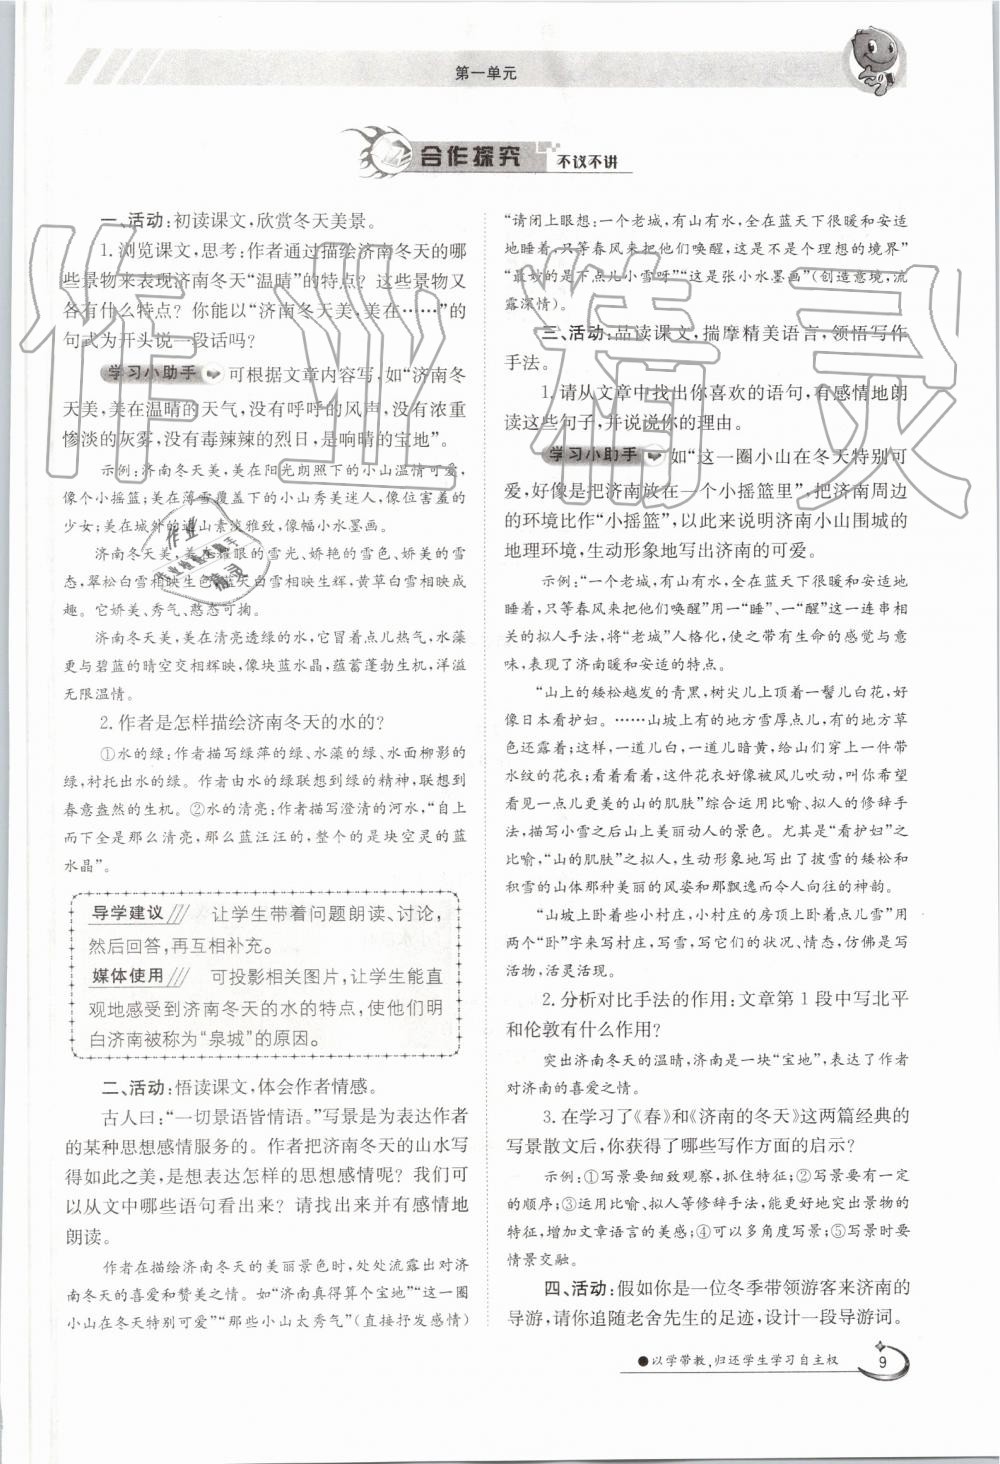 第一单元
合作探究 不议不讲
一、活动:初读课文,欣赏冬天美景。
1. 浏览课文,思考:作者通过描绘济南冬天的哪
些景物来表现济南冬天“温晴”的特点? 这些景物又
各有什么特点? 你能以“济南冬天美,美在……”的
句式为开头说一段话吗?
学习小助手 可根据文章内容写,如“济南冬
天美,美在温晴的天气,没有呼呼的风声,没有浓重
惨淡的灰雾,没有毒辣辣的烈日,是响晴的宝地”。
示例:济南冬天美,美在阳光朗照下的小山温情可爱,
像个小摇篮;美在薄雪覆盖下的小山秀美迷人,像位害羞的
少女;美在城外的远山素淡雅致,像幅小水墨画。
济南冬天美,美在耀眼的雪光、娇艳的雪色、娇美的雪
态,翠松白雪相映生色,蓝天白雪相映生辉,黄草白雪相映成
趣。它娇美、秀气、憨态可掬。
济南冬天美,美在清亮透绿的水,它冒着点儿热气,水藻
更与碧蓝的晴空交相辉映,像块蓝水晶,蕴蓄蓬勃生机,洋溢
无限温情。
2. 作者是怎样描绘济南冬天的水的?
①水的绿:作者描写绿萍的绿、水藻的绿、水面柳影的
绿,衬托出水的绿。作者由水的绿联想到绿的精神,联想到
春意盎然的生机。②水的清亮:作者描写澄清的河水,“自上
而下全是那么清亮,那么蓝汪汪的,整个的是块空灵的蓝
水晶”。
导学建议 让学生带着问题朗读、讨论,
然后回答,再互相补充。
媒体使用 可投影相关图片,让学生能直
观地感受到济南冬天的水的特点,使他们明
白济南被称为“泉城”的原因。
二、活动:悟读课文,体会作者情感。
古人曰:“一切景语皆情语。”写景是为表达作者
的某种思想感情服务的。作者把济南冬天的山水写
得如此之美,是想表达怎样的思想感情呢? 我们可
以从文中哪些语句看出来? 请找出来并有感情地
朗读。
作者在描绘济南冬天的美丽景色时,处处流露出对济
南冬天的喜爱和赞美之情。如“济南真得算个宝地”“这一圈
小山在冬天特别可爱”“那些小山太秀气”(直接抒发感情)
“请闭上眼想:一个老城,有山有水,全在蓝天下很暖和安适
地睡着,只等春风来把他们唤醒,这是不是个理想的境界”
“最妙的是下点儿小雪呀”“这是张小水墨画”(创造意境,流
露深情)。
三、活动:品读课文,揣摩精美语言,领悟写作
手法。
1. 请从文章中找出你喜欢的语句,有感情地朗
读这些句子,并说说你的理由。
学习小助手 如“这一圈小山在冬天特别可
爱,好像是把济南放在一个小摇篮里”,把济南周边
的环境比作“小摇篮”,以此来说明济南小山围城的
地理环境,生动形象地写出济南的可爱。
示例:“一个老城,有山有水,全在蓝天下很暖和安适地
睡着,只等春风来把他们唤醒”用一“睡”、一“醒”这一连串相
关的拟人手法,将“老城”人格化,使之带有生命的感觉与意
味,表现了济南暖和安适的特点。
“山上的矮松越发的青黑,树尖儿上顶着一髻儿白花,好
像日本看护妇。……山坡上有的地方雪厚点儿,有的地方草
色还露着;这样,一道儿白,一道儿暗黄,给山们穿上一件带
水纹的花衣;看着看着,这件花衣好像被风儿吹动,叫你希望
看见一点儿更美的山的肌肤”综合运用比喻、拟人的修辞手
法,描写小雪之后山上美丽动人的景色。尤其是“看护妇”之
比喻,“山的肌肤”之拟人,生动形象地写出了披雪的矮松和
积雪的山体那种美丽的风姿和那飘逸而又美好的神韵。
“山坡上卧着些小村庄,小村庄的房顶上卧着点儿雪”用
两个“卧”字来写村庄,写雪,写它们的状况、情态,仿佛是写
活物,活灵活现。
2. 分析对比手法的作用:文章第 1 段中写北平
和伦敦有什么作用?
突出济南冬天的温晴,济南是一块“宝地”,表达了作者
对济南的喜爱之情。
3. 在学习了《春》和《济南的冬天》这两篇经典的
写景散文后,你获得了哪些写作方面的启示?
示例:①写景要细致观察,抓住特征;②写景要有一定
的顺序;③运用比喻、拟人等修辞手法,能更好地突出景物的
特征,增加文章语言的美感;④可以多角度写景;⑤写景时要
情景交融。
四、活动:假如你是一位冬季带领游客来济南的
导游,请你追随老舍先生的足迹,设计一段导游词。
●以学带教,归还学生学习自主权 9
作业精灵